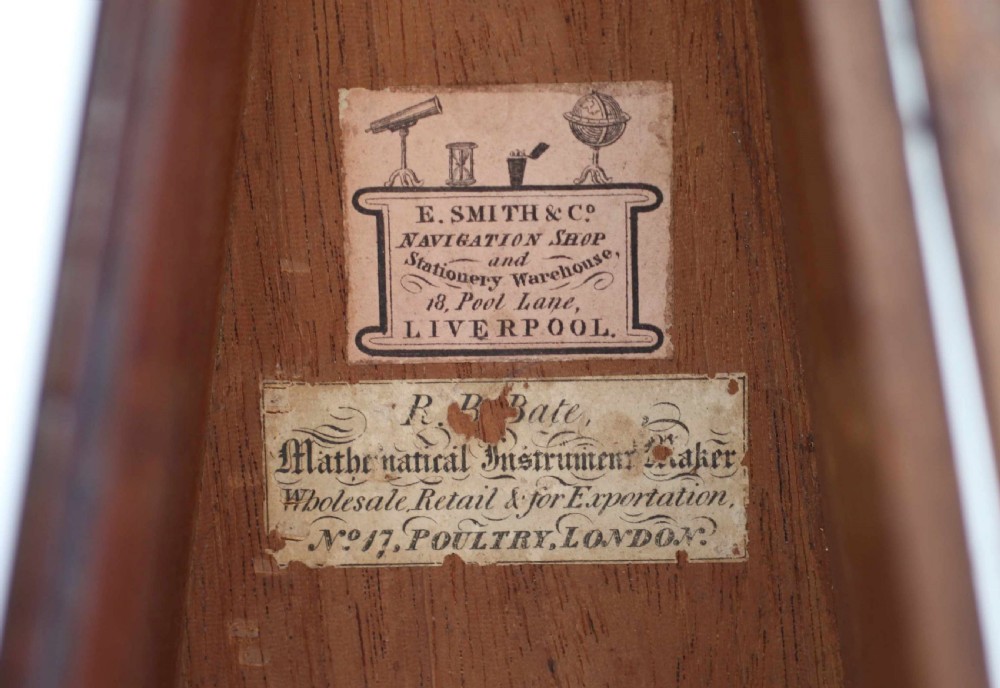 E. SMITH & Co.
NAVIGATION SHOP
and
Stationery Warehouse,
18, Pool Lane,
LIVERPOOL.
R. B. Bate,
Mathematical Instrument Maker,
Wholesale, Retail & for Exportation,
No. 17, POULTRY, LONDON.